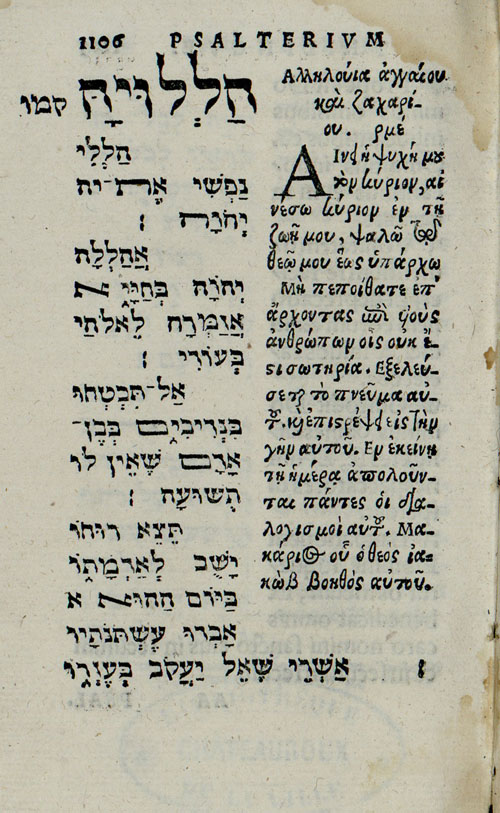 1106 PSALTERIVM
הַלְלוּיָהּ קמו
הַלְלִי
נַפְשִׁי אֶת־יה
יְהוָה :
אֲהַלְלָה
יְהוָה בְּחַיָּי א
אֲזַמְּרָה לֵאלֹהַי
בְּעוֹדִי :
אַל־תִּבְטְחוּ
בִנְדִיבִים בְּבֶן־
אָדָם שֶׁאֵין לוֹ
תְשׁוּעָה :
תֵּצֵא רוּחוֹ
יָשֻׁב לְאַדְמָתוֹ
בַּיּוֹם הַהוּא א
אָבְדוּ עֶשְׁתֹּנֹתָיו
אַשְׁרֵי שֶׁאֵל יַעֲקֹב בְּעֶזְרוֹ :
Αλληλούια ἀγγαίου
καὶ ζαχαρί-
ου. ρμέ
Αἴνει ἡ ψυχή μου
τὸν κύριον, αἰ
νέσω κύριον ἐν τῇ
ζωῇ μου, ψαλῶ τῷ
θεῷ μου ἕως ὑπάρχω
Μὴ πεποίθατε ἐπ'
ἄρχοντας ἐπὶ υἱοὺς
ἀνθρώπων οἷς οὐκ ἔ-
ϛι σωτηρία. Εξελεύ-
σεται τὸ πνεῦμα αὐ-
τοῦ. καὶ ἐπιϛρέψει εἰς τὴν
γῆν αὐτοῦ. Εν ἐκείνῃ
τῇ ἡμέρᾳ ἀπολοῦν-
ται πάντες οἱ δια-
λογισμοὶ αὐτοῦ. Μα-
κάριος οὗ ὁ θεὸς ἰα-
κὼβ βοηθὸς αὐτοῦ.